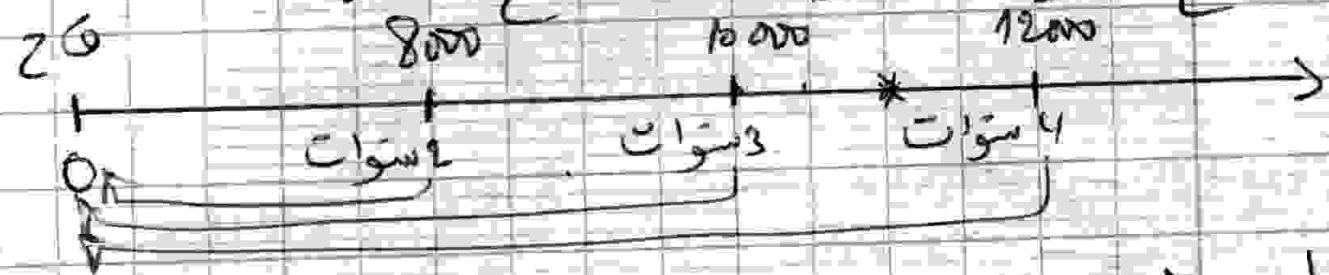 8000 10000 12000
2 سنوات 3 سنوات 4 سنوات
0